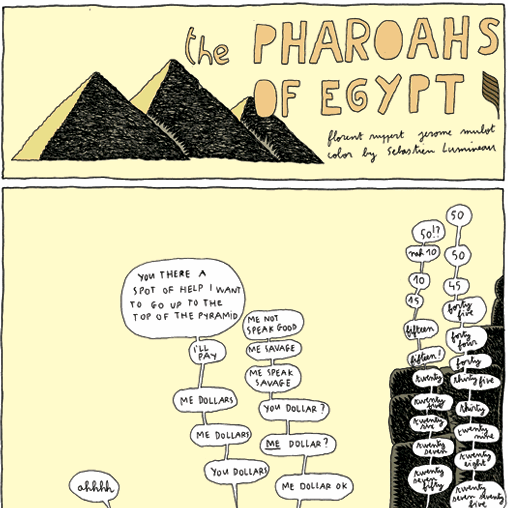 the PHAROAHS
OF EGYPT
florent ruppert jerome mulot
color by Sebastien Lumineau
YOU THERE A
SPOT OF HELP I WANT
TO GO UP TO THE
TOP OF THE PYRAMID
I'LL
PAY
ME DOLLARS
ME DOLLARS
YOU DOLLARS
ME NOT
SPEAK GOOD
ME SAVAGE
ME SPEAK
SAVAGE
YOU DOLLAR?
ME DOLLAR?
ME DOLLAR OK
ahhhh
50!?
nah 10
10
15
fifteen
fifteen!
twenty
twenty
five
twenty
six
twenty
seven
twenty
seven
fifty
50
50
45
forty
five
forty
four
forty
thirty five
thirty
twenty
nine
twenty
eight
twenty
seven seventy
five